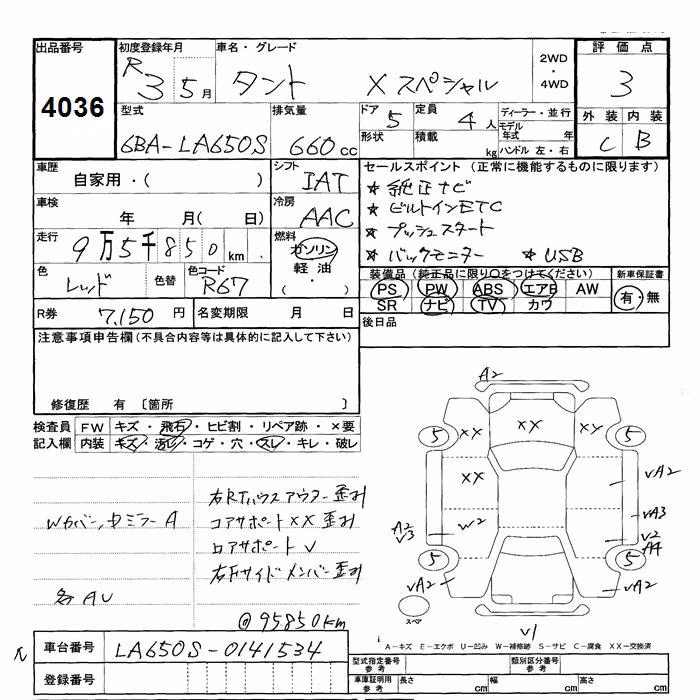 出品番号 初度登録年月 車名・グレード 2WD・4WD 評価点
4036 R3 5月 タント Xスペシャル 3
型式 排気量 ドア 定員 ディーラー・並行 外装 内装
6BA-LA650S 660cc 5 4人 モデル年式 年 C B
形状 積載 kg ハンドル 左・右
車歴 シフト セールスポイント (正常に機能するものに限ります)
自家用・( ) IAT ☆ 純正ナビ
車検 冷房 ☆ ビルトインETC
年 月( 日) AAC ☆ プッシュスタート
走行 燃料 ☆ バックモニター ☆ USB
9万5千850km ガソリン
軽油
( ・ )
色 色替 色コード 装備品 (純正品に限り○をつけてください) 新車保証書
レッド R67 PS PW ABS エアB AW 有・無
SR ナビ TV カワ
R券 7,150円 名変期限 月 日 後日品
注意事項申告欄 (不具合内容等は具体的に記入して下さい)
修復歴 有 〔箇所 〕
検査員 FW キズ・飛石・ヒビ割・リペア跡・×要
記入欄 内装 キズ・汚レ・コゲ・穴・スレ・キレ・破レ
右Rタイヤハウスアウター歪ミ
Wカバー、ドミラーA コアサポートXX歪ミ
ロアサポートV
右Fサイドメンバー歪ミ
各AU
@95850km
A2
5 XX XX 5
XX VA2
W2 VA3
A2 V3 V2 A4
5 5
VA2 VA2
スペ
V1
A-キズ E-エクボ U-凹み W-補修跡 S-サビ C-腐食 XX-交換済
車台番号 LA650S-0141534
登録番号
型式指定番号 参考 類別区分番号 参考
車庫証明用 参考 長さ cm 幅 cm 高さ cm